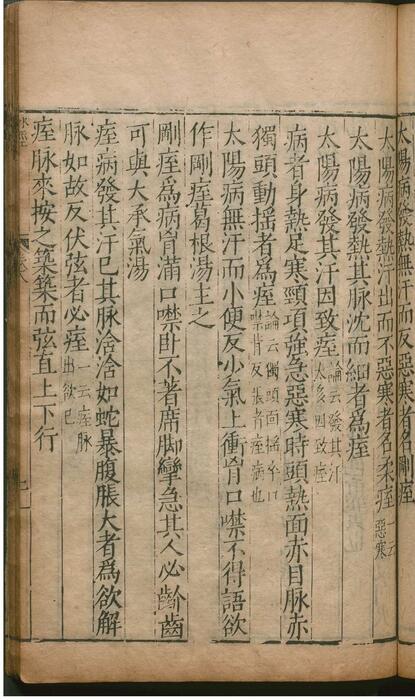 太陽病發熱無汗而反惡寒者名剛痓
太陽病發熱汗出而不惡寒者名柔痓一云惡寒
太陽病發熱其脉沈而細者爲痓
太陽病發其汗因致痓論云發其汗太多因致痓
病者身熱足寒頸項強急惡寒時頭熱面赤目脉赤
獨頭動搖者爲痓論云獨頭面搖卒口噤背反張者痓病也
太陽病無汗而小便反少氣上衝胷口噤不得語欲
作剛痓葛根湯主之
剛痓爲病胷滿口噤臥不著席脚攣急其人必齘齒
可與大承氣湯
痓病發其汗已其脉浛浛如蛇暴腹脹大者爲欲解
脉如故反伏弦者必痓一云痓脉出欲已
痓脉來按之築築而弦直上下行